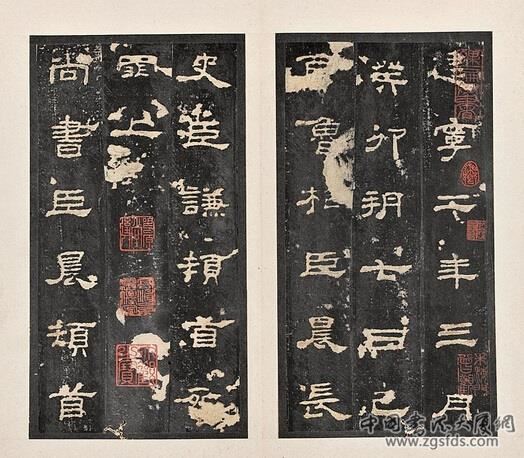 建寧二年三月
癸卯朔七日己
酉魯相臣晨長
史臣謙頓首死
罪上
尚書臣晨頓首
www.zgsfds.com